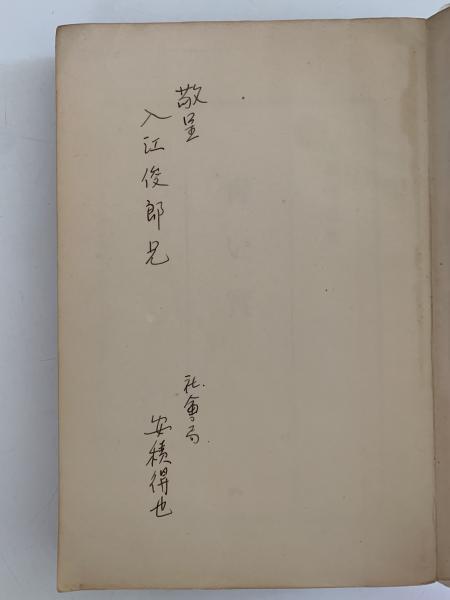 敬呈
入江俊郎兄
社會局
安積得也